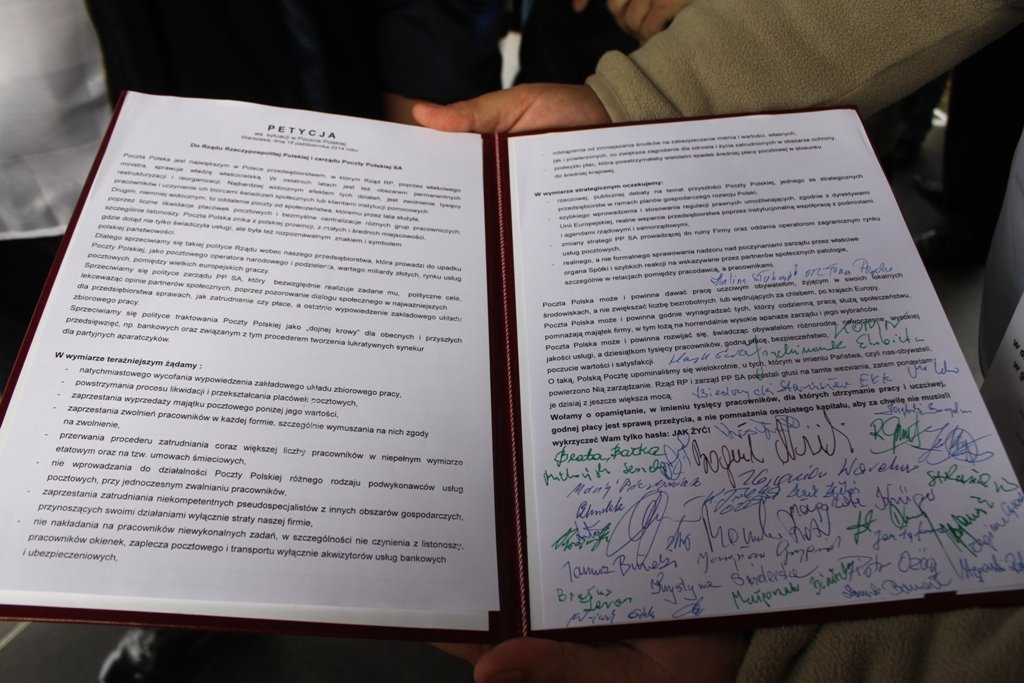 PETYCJA
ws. sytuacji w Poczcie Polskiej
Warszawa, dnia 18 października 2014 roku
Do Rządu Rzeczypospolitej Polskiej i zarządu Poczty Polskiej SA
Poczta Polska jest największym w Polsce przedsiębiorstwem, w którym Rząd RP poprzez właściwego
ministra, sprawuje władzę właścicielską. W ostatnich latach jest też obszarem permanentnych
restrukturyzacji i reorganizacji. Najbardziej widocznym efektem tych działań, jest zwolnienie tysięcy
pracowników i uczynienie ich biorcami świadczeń społecznych lub klientami instytucji pomocowych.
Drugim, niemniej widomym, to oddalenie poczty od społeczeństwa, któremu przez lata służyła,
poprzez liczne likwidacje placówek pocztowych i bezmyślne centralizacje różnych grup pracowniczych,
szczególnie listonoszy. Poczta Polska znika z polskiej prowincji, z małych i średnich miejscowości,
gdzie dotąd nie tylko świadczyła usługi, ale była też rozpoznawalnym znakiem i symbolem
polskiej państwowości.
Dlatego sprzeciwiamy się takiej polityce Rządu wobec naszego przedsiębiorstwa, która prowadzi do upadku
Poczty Polskiej, jako pocztowego operatora narodowego i podzielenia, wartego miliardy złotych, rynku usług
pocztowych, pomiędzy wielkich europejskich graczy.
Sprzeciwiamy się polityce zarządu PP SA, który bezwzględnie realizuje zadane mu, polityczne cele,
lekceważąc opinie partnerów społecznych, poprzez pozorowanie dialogu społecznego w najważniejszych
dla przedsiębiorstwa sprawach, jak zatrudnienie czy płace, a ostatnio wypowiedzenie zakładowego układu
zbiorowego pracy.
Sprzeciwiamy się polityce traktowania Poczty Polskiej jako „dojnej krowy" dla obecnych i przyszłych
przedsięwzięć, np. bankowych oraz związanym z tym procederem tworzenia lukratywnych synekur
dla partyjnych aparatczyków.
W wymiarze teraźniejszym żądamy :
- natychmiastowego wycofania wypowiedzenia zakładowego układu zbiorowego pracy,
- powstrzymania procesu likwidacji i przekształcania placówek pocztowych,
- zaprzestania wyprzedaży majątku pocztowego poniżej jego wartości,
- zaprzestania zwolnień pracowników w każdej formie, szczególnie wymuszania na nich zgody
na zwolnienie,
- przerwania procederu zatrudniania coraz większej liczby pracowników w niepełnym wymiarze
etatowym oraz na tzw. umowach śmieciowych,
- nie wprowadzania do działalności Poczty Polskiej różnego rodzaju podwykonawców usług
pocztowych, przy jednoczesnym zwalnianiu pracowników,
- zaprzestania zatrudniania niekompetentnych pseudospecjalistów z innych obszarów gospodarczych,
przynoszących swoimi działaniami wyłącznie straty naszej firmie,
- nie nakładania na pracowników niewykonalnych zadań, w szczególności nie czynienia z listonoszy,
pracowników okienek, zaplecza pocztowego i transportu wyłącznie akwizytorów usług bankowych
i ubezpieczeniowych,
- odstąpienia od zmniejszania środków na zabezpieczenie mienia i wartości, własnych,
jak i powierzonych, co zwiększa zagrożenia dla zdrowia i życia zatrudnionych w obszarze ochrony,
- podwyżki płac, która powstrzymałaby wieloletni spadek średniej płacy pocztowej w stosunku
do średniej krajowej.
W wymiarze strategicznym oczekujemy:
- rzeczowej, publicznej debaty na temat przyszłości Poczty Polskiej, jednego ze strategicznych
przedsiębiorstw w ramach planów gospodarczego rozwoju Polski,
- szybkiego wprowadzenia i stosowania regulacji prawnych umożliwiających, zgodnie z dyrektywami
Unii Europejskiej, realne wsparcie przedsiębiorstwa poprzez instytucjonalną współpracę z podmiotami
i agendami rządowymi i samorządowymi,
- zmiany strategii PP SA prowadzącej do ruiny Firmy oraz oddania operatorom zagranicznym rynku
usług pocztowych,
- realnego, a nie formalnego sprawowania nadzoru nad poczynaniami zarządu przez właściwe
organa Spółki i szybkich reakcji na wskazywane przez partnerów społecznych patologie,
szczególnie w relacjach pomiędzy pracodawcą, a pracownikami.
Poczta Polska może i powinna dawać pracę uczciwym obywatelom, żyjącym w swoich lokalnych
środowiskach, a nie zwiększać liczbę bezrobotnych lub wędrujących za chlebem, po krajach Europy.
Poczta Polska może i powinna godnie wynagradzać tych, którzy codzienną pracą służą społeczeństwu,
pomnażają majątek firmy, w tym łożą na horrendalnie wysokie apanaże zarządu i jego wybrańców.
Poczta Polska może i powinna rozwijać się, świadcząc obywatelom różnorodne usługi wysokiej
jakości usługi, a dziesiątkom tysięcy pracowników, godną płacę, bezpieczeństwo,
poczucie wartości i satysfakcji.
O taką, Polską Pocztę upominaliśmy się wielokrotnie, u tych, którym w imieniu Państwa, czyli nas-obywateli,
powierzono Nią zarządzanie. Rząd RP i zarząd PP SA pozostał głusi na tamte wezwania, zatem ponawiamy
je dzisiaj z jeszcze większą mocą.
Wołamy o opamiętanie, w imieniu tysięcy pracowników, dla których utrzymanie pracy i uczciwej,
godnej płacy jest sprawą przeżycia, a nie pomnażania osobistego kapitału, aby za chwilę nie musieli
wykrzyczeć Wam tylko hasła: JAK ŻYĆ!
Beata Batka
Janusz
Krystyna
Małgorzata
Piotr